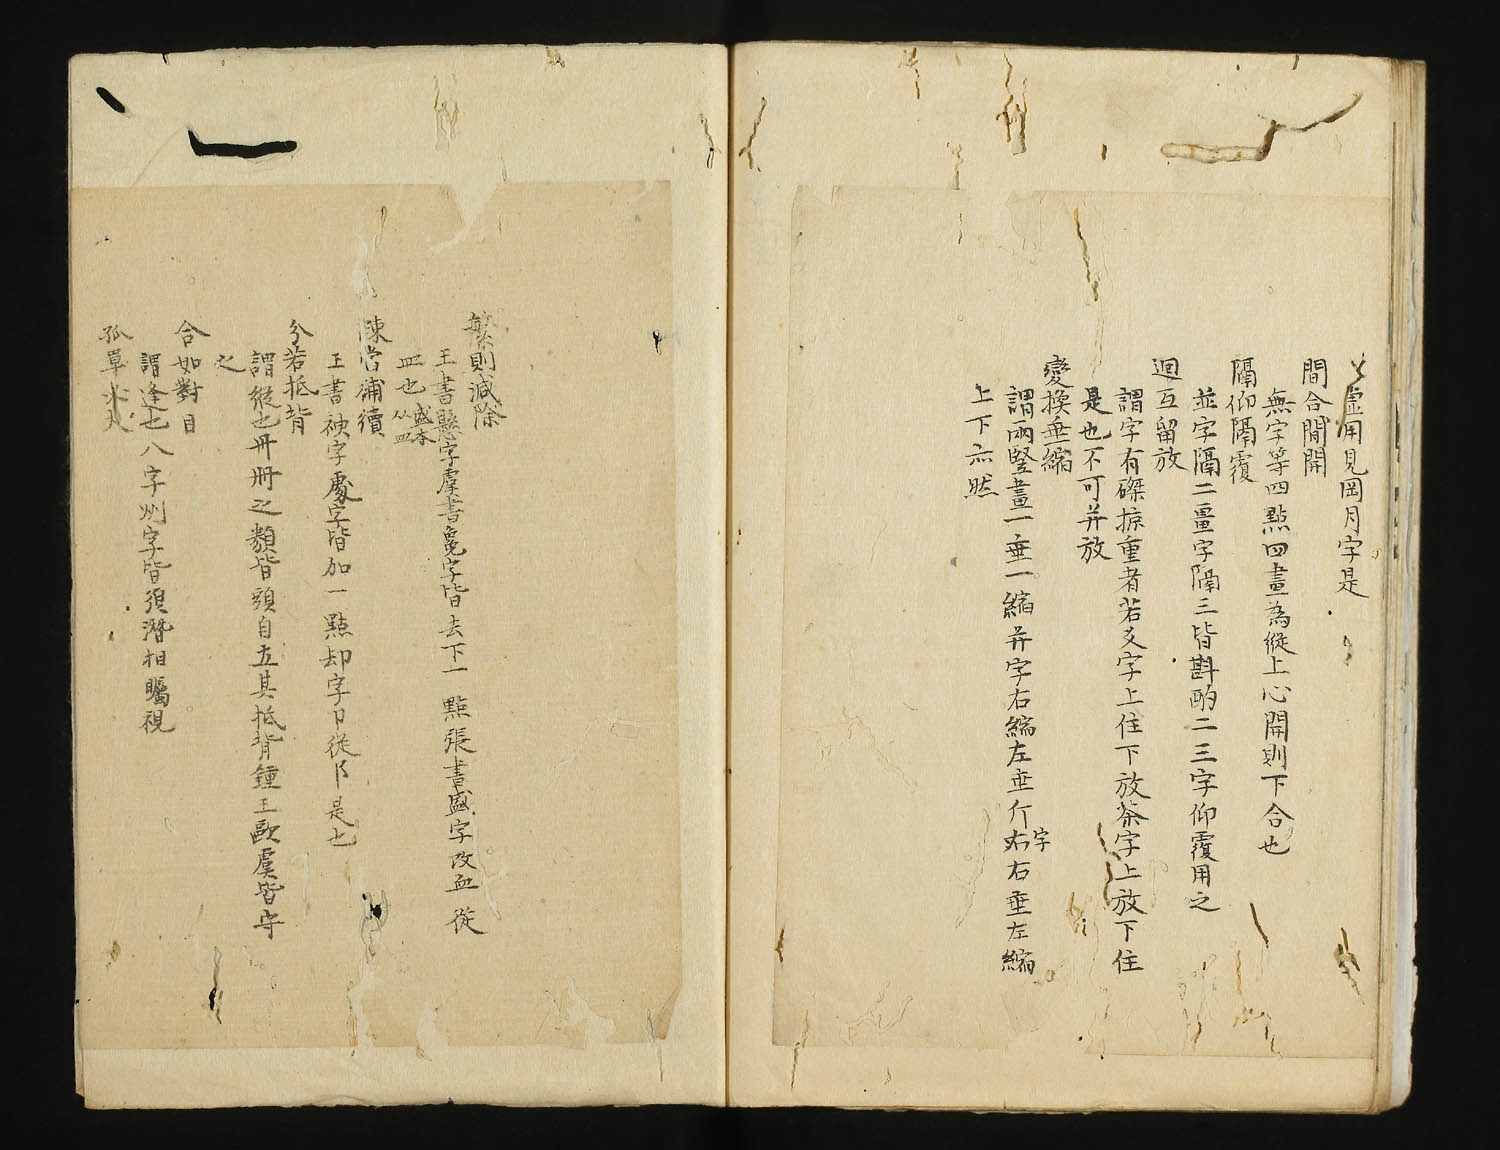 虚用見岡月字是
間合間開
無字等四點四畫為縱上心開則下合也
隔仰隔覆
並字隔二畺字隔三皆斟酌二三字仰覆用之
迴互留放
謂字有磔掠重者若爻字上住下放茶字上放下住
是也不可并放
變換垂縮
謂兩竪畫一垂一縮并字右縮左垂斤字右右垂左縮
上下亦然
繁則減除
王書懸字虞書毚字皆去下一點張書盛字改血從
皿也盛本从皿
王書神字處字皆加一點却字卩從阝是也
分若抵背
謂縱也卌冊之類皆須自立其抵背鍾王歐虞皆守
之
合如對目
謂逢也八字州字皆須潛相矚視
孤單必大